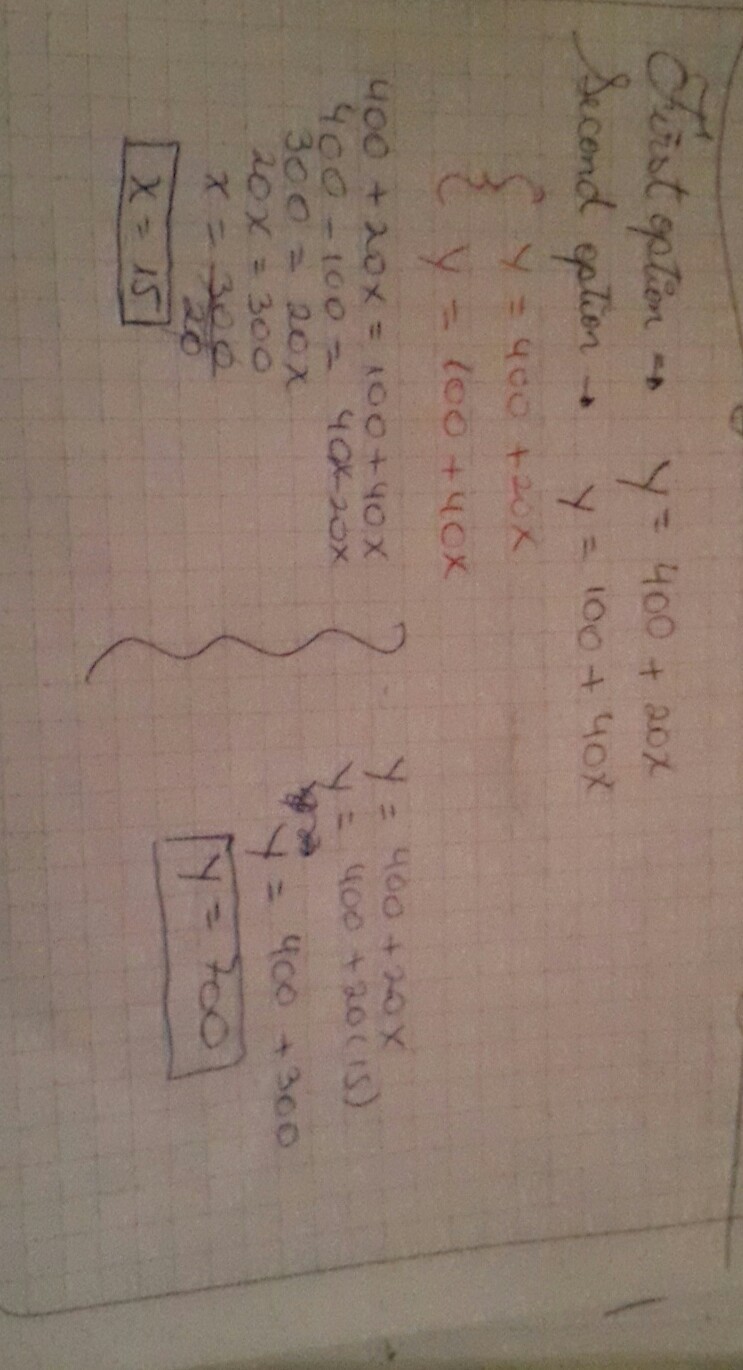 First option → y = 400 + 20x
Second option → y = 100 + 40x
{ y = 400 + 20x
{ y = 100 + 40x
400 + 20x = 100 + 40x
400 - 100 = 40x - 20x
300 = 20x
20x = 300
x = 300/20
x = 15
y = 400 + 20x
y = 400 + 20(15)
y = 400 + 300
y = 700